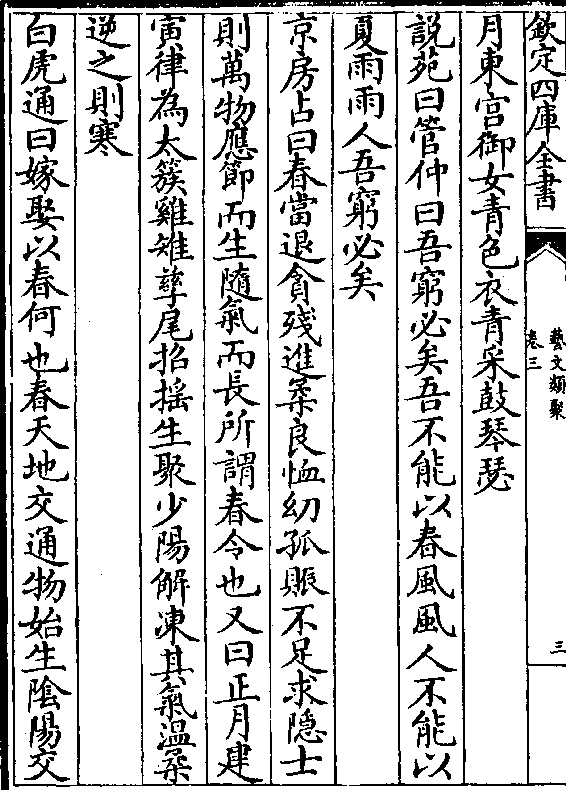 欽定四庫全書
藝文類聚
卷三
三
月東宮御女青色衣青采鼓琴瑟
說苑曰管仲曰吾窮必矣吾不能以春風風人不能以
夏雨雨人吾窮必矣
京房占曰春當退貪殘進柔良恤幼孤賑不足求隱士
則萬物應節而生隨氣而長所謂春令也又曰正月建
寅律為太簇雞雉孳尾招搖生聚少陽解凍其氣溫柔
逆之則寒
白虎通曰嫁娶以春何也春天地交通物始生陰陽交